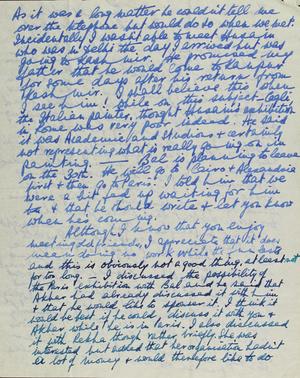 As it was a long matter he couldn't tell me
over the telephone but would do so when we met.
Incidentally I wasn't able to meet Husain
who was in Delhi the day I arrived but was
going to Kashmir. He promised my
father that he would come to
for some days after his return from
Kashmir. I shall believe this when
I see him! While on this subject
the Italian painter, thought Husain's exhibition
in Rome was very poor indeed. He said
it was Academic and Studious & certainly
not representing what is really going on in
painting. — Bal is planning to leave
on the 30th. He will go to Cairo & Alexandria
first & then go to Paris. I told him that we
were & waiting for him
to & that he should write & let you know
when he's coming.
Although I know that you enjoy
meeting old friends, I appreciate that it does
mean doing no work while
and this is obviously not a good thing, at least not
for too long. — I discussed the possibility of
the Paris exhibition with Bal and he said that
Akbar had already discussed it with him
& that he would like to sponsor it. I think it
would be best if he could discuss it with you &
Akbar while he is in Paris. I also discussed
it with Lekha, though rather briefly. She was
interested but added that her organisation hadn't
a lot of money & would therefore like to do